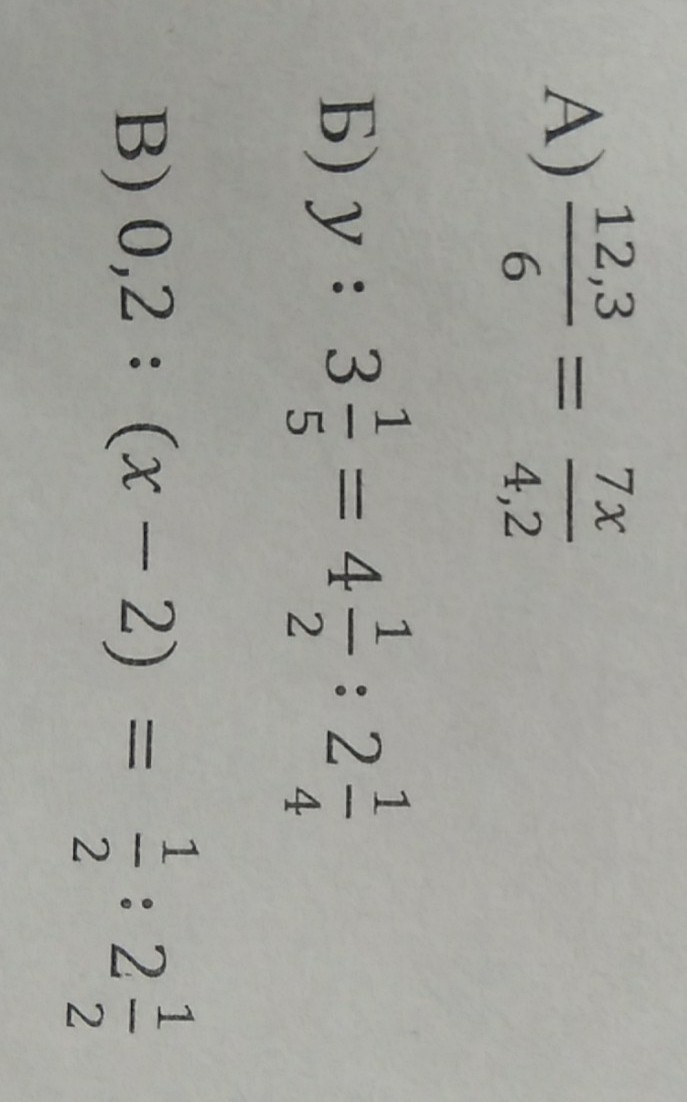 А) 12,3/6 = 7x/4,2
Б) y : 3 1/5 = 4 1/2 : 2 1/4
В) 0,2 : (x − 2) = 1/2 : 2 1/2